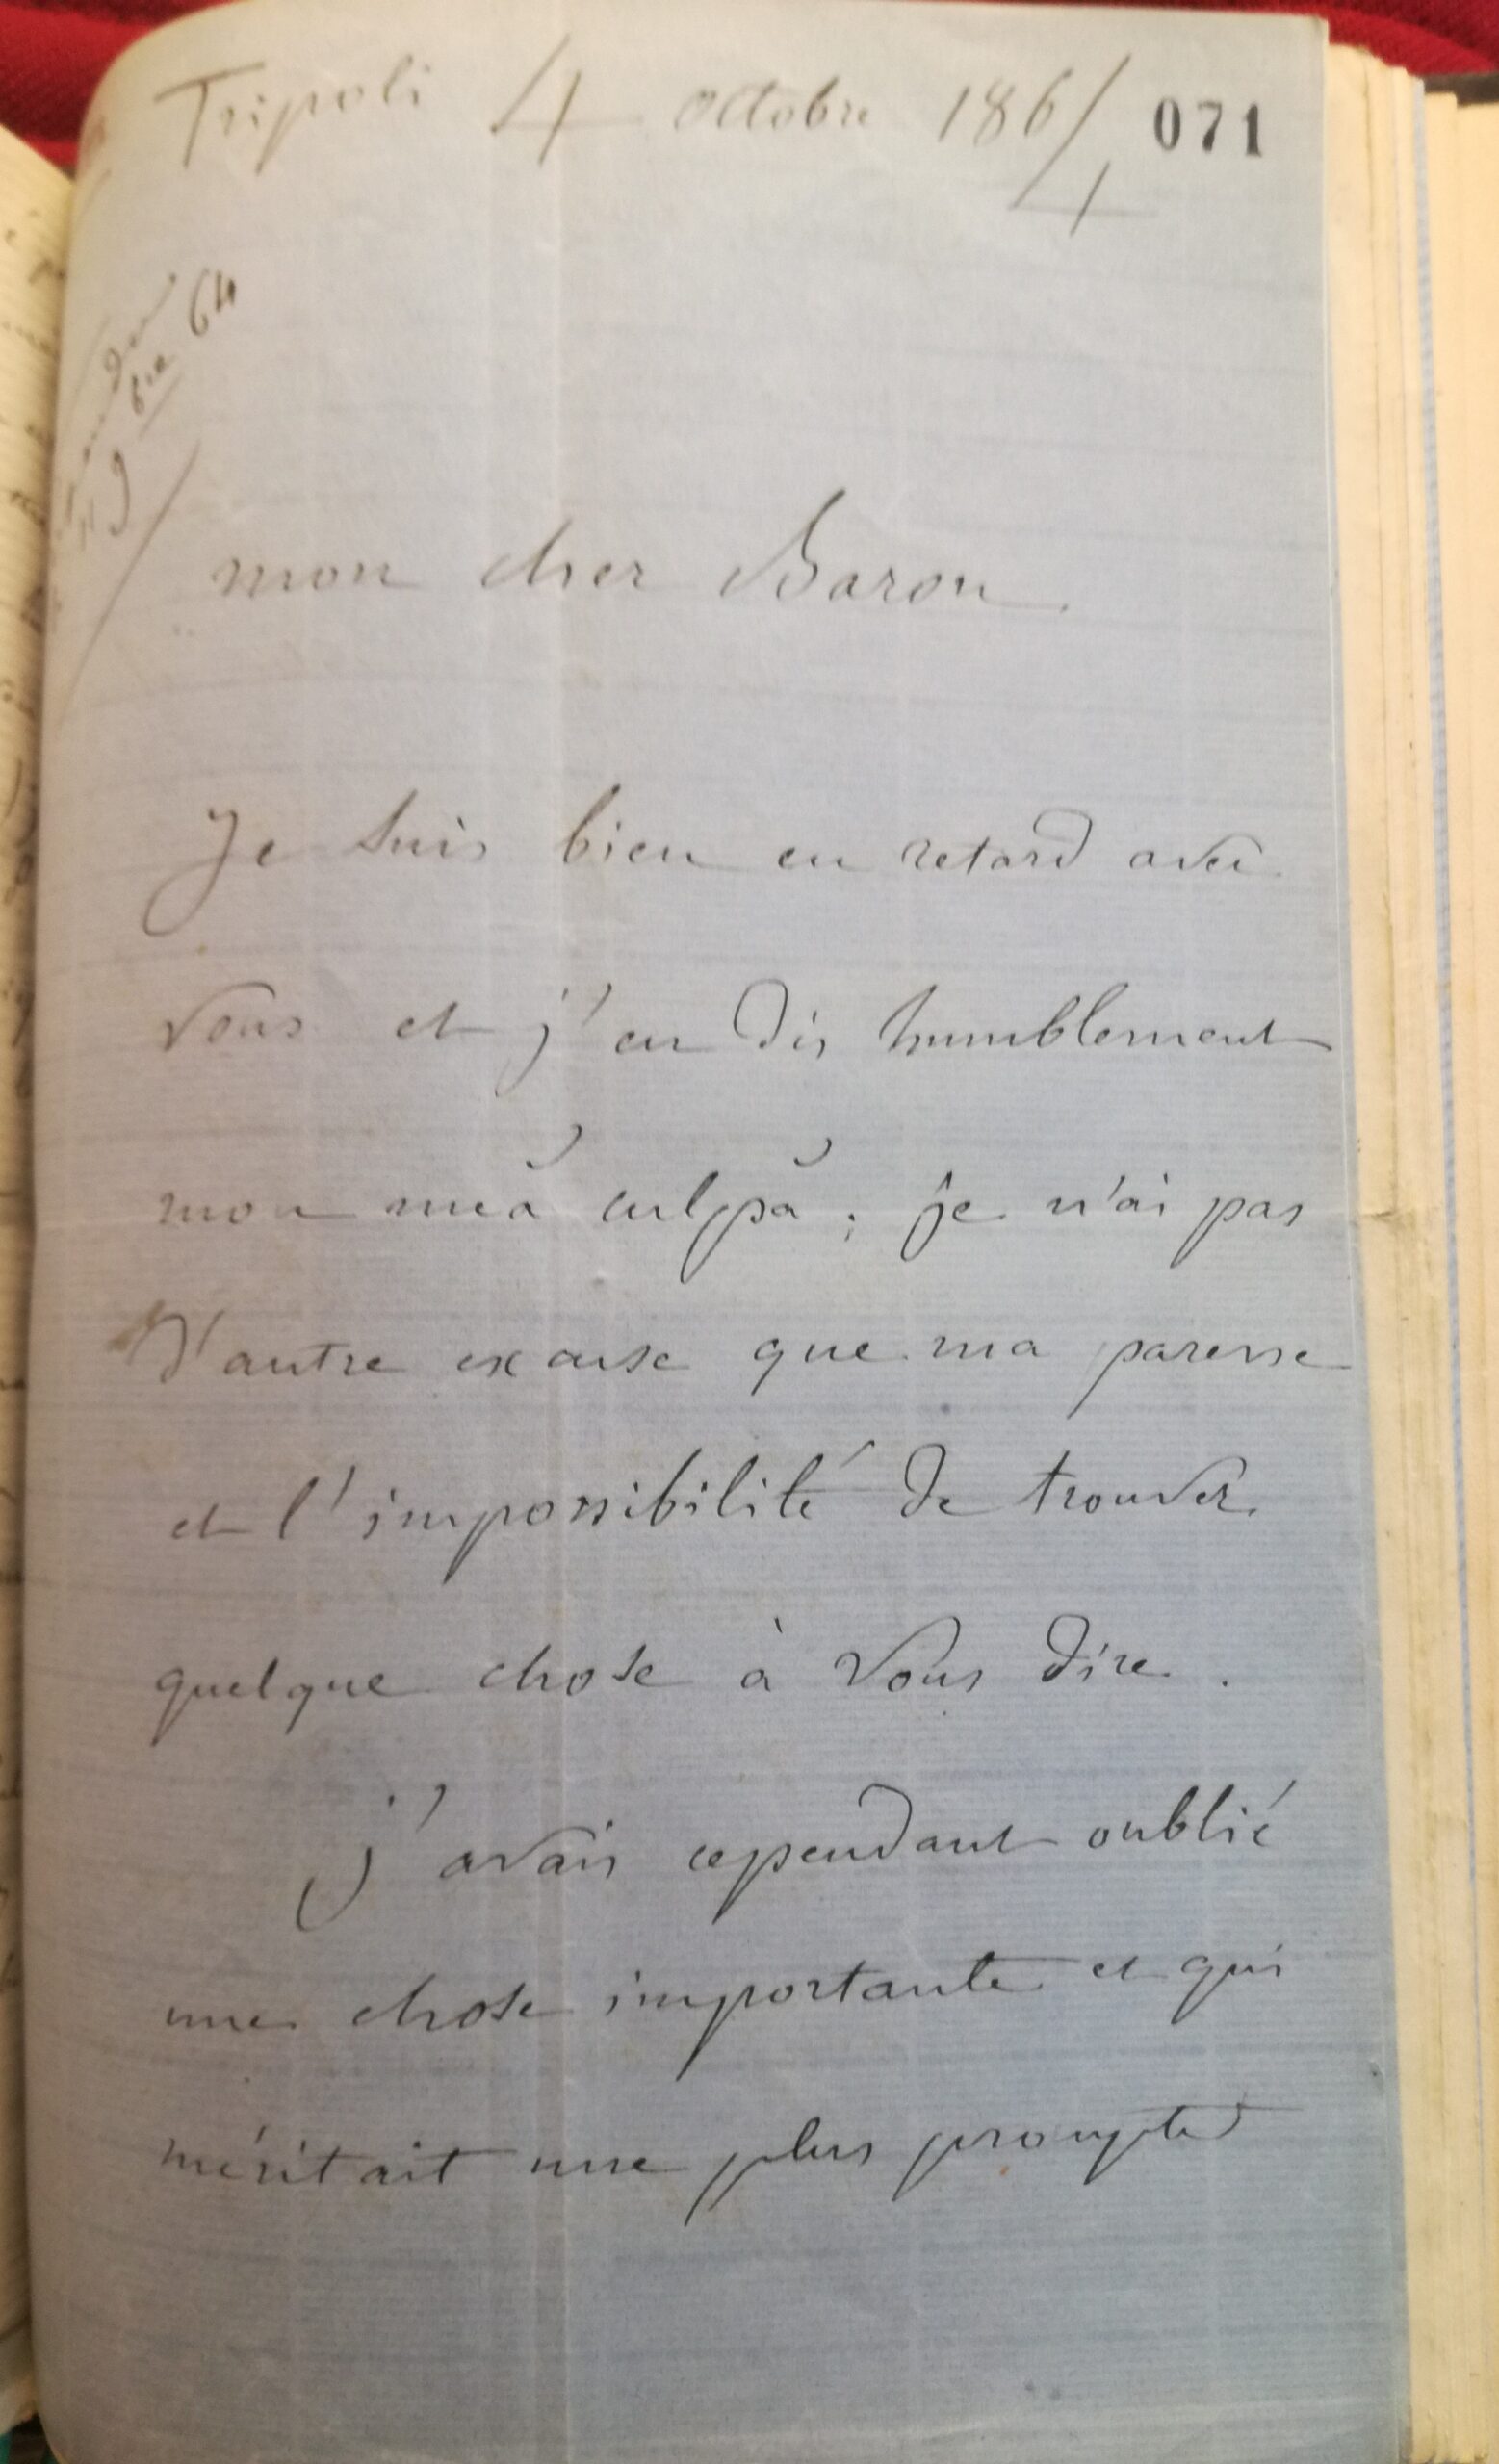 Tripoli 4 octobre 1864
071
9 bre 64
mon cher Baron.
Je suis bien en retard avec
vous et j'en dis humblement
mon meâ culpâ; je n'ai pas
d'autre excuse que ma paresse
et l'impossibilité de trouver
quelque chose à vous dire.
j'avais cependant oublié
une chose importante et qui
méritait une plus prompte